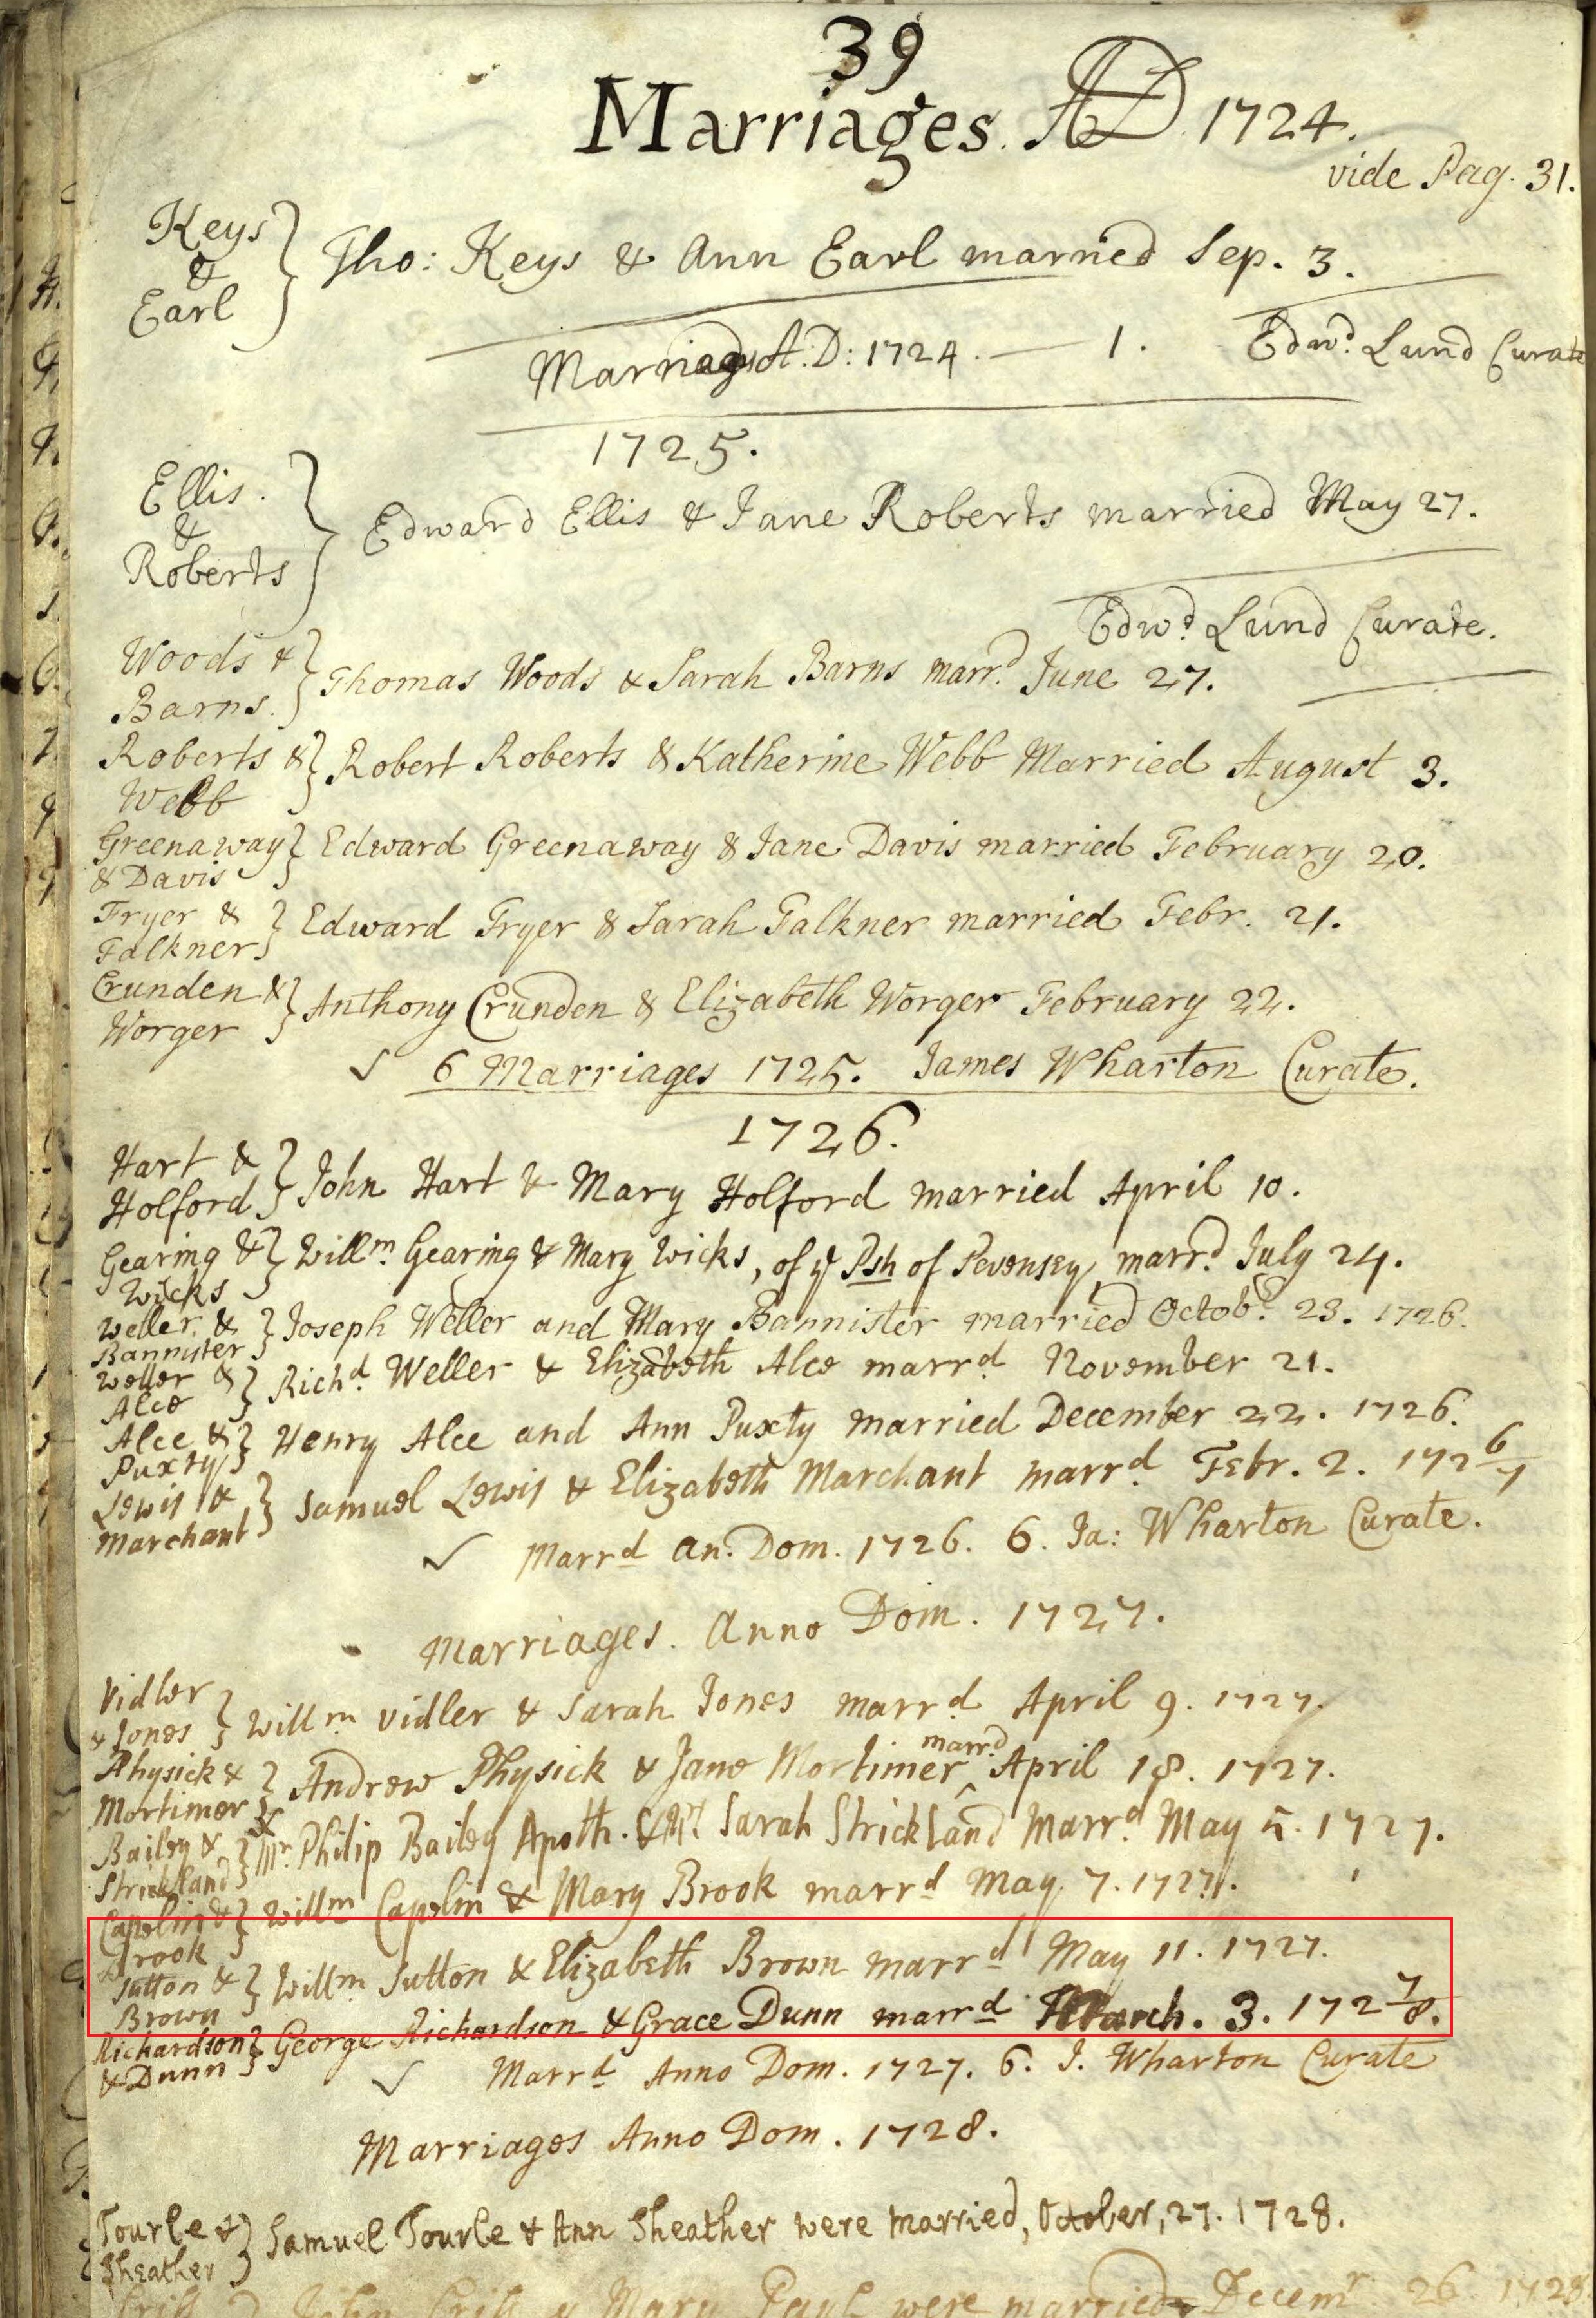 39
Marriages. AD 1724.
vide Pag. 31.
Keys
&
Earl
Tho: Keys & Ann Earl married Sep. 3.
Marriages A.D: 1724. — 1. Edwd. Lund Curate
1725.
Ellis.
&
Roberts
Edward Ellis & Jane Roberts married May 27.
Edwd Lund Curate.
Woods &
Barns.
Thomas Woods & Sarah Barns marrd. June 27.
Roberts &
Webb
Robert Roberts & Katherine Webb Married August 3.
Greenaway
& Davis
Edward Greenaway & Jane Davis married February 20.
Fryer &
Falkner
Edward Fryer & Sarah Falkner married Febr. 21.
Crunden &
Worger
Anthony Crunden & Elizabeth Worger February 22.
✓ 6 Marriages 1725. James Wharton Curate.
1726.
Hart &
Holford
John Hart & Mary Holford married April 10.
Gearing &
Wicks
Willm. Gearing & Mary Wicks, of ye Psh of Pevensey, marrd. July 24.
Weller &
Bannister
Joseph Weller and Mary Bannister married Octobr. 23. 1726.
Weller &
Alce
Richd. Weller & Elizabeth Alce marrd November 21.
Alce &
Puxty
Henry Alce and Ann Puxty married December 22. 1726.
Lewis &
Marchant
Samuel Lewis & Elizabeth Marchant marrd Febr. 2. 1726/7
✓ Marrd An. Dom. 1726. 6. Ja: Wharton Curate.
Marriages. Anno Dom. 1727.
Vidler
& Jones
Willm Vidler & Sarah Jones marrd April 9. 1727.
Physick &
Mortimer
Andrew Physick & Jane Mortimer marrd. April 18. 1727.
Bailey &
Strickland
Mr. Philip Bailey Apoth. & Mrs Sarah Strickland Marrd. May 5. 1727.
Capelin &
Brook
Willm Capelin & Mary Brook marrd May. 7. 1727.
Sutton &
Brown
Willm Sutton & Elizabeth Brown marrd May 11. 1727.
Richardson
& Dunn
George Richardson & Grace Dunn marrd March. 3. 1727/8.
✓ Marrd Anno Dom. 1727. 6. J. Wharton Curate
Marriages Anno Dom. 1728.
Tourle &
Sheather
Samuel Tourle & Ann Sheather were married, October, 27. 1728.
John & Mary were married Decemr. 26 1728